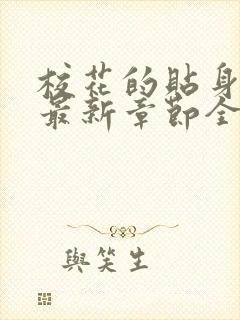 校花的貼身
最新章節全
與笑生